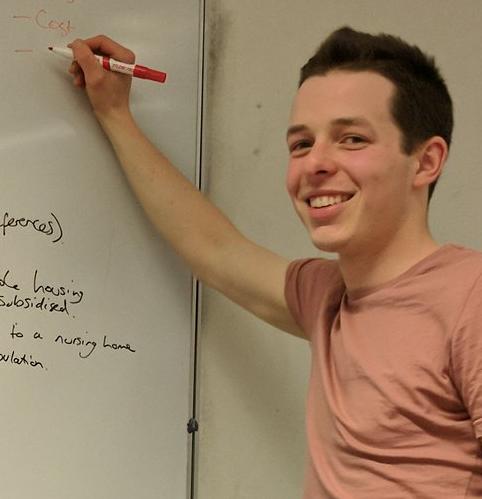 - Cost
-
ferences)
housing
subsidised.
to a nursing home
ulation.